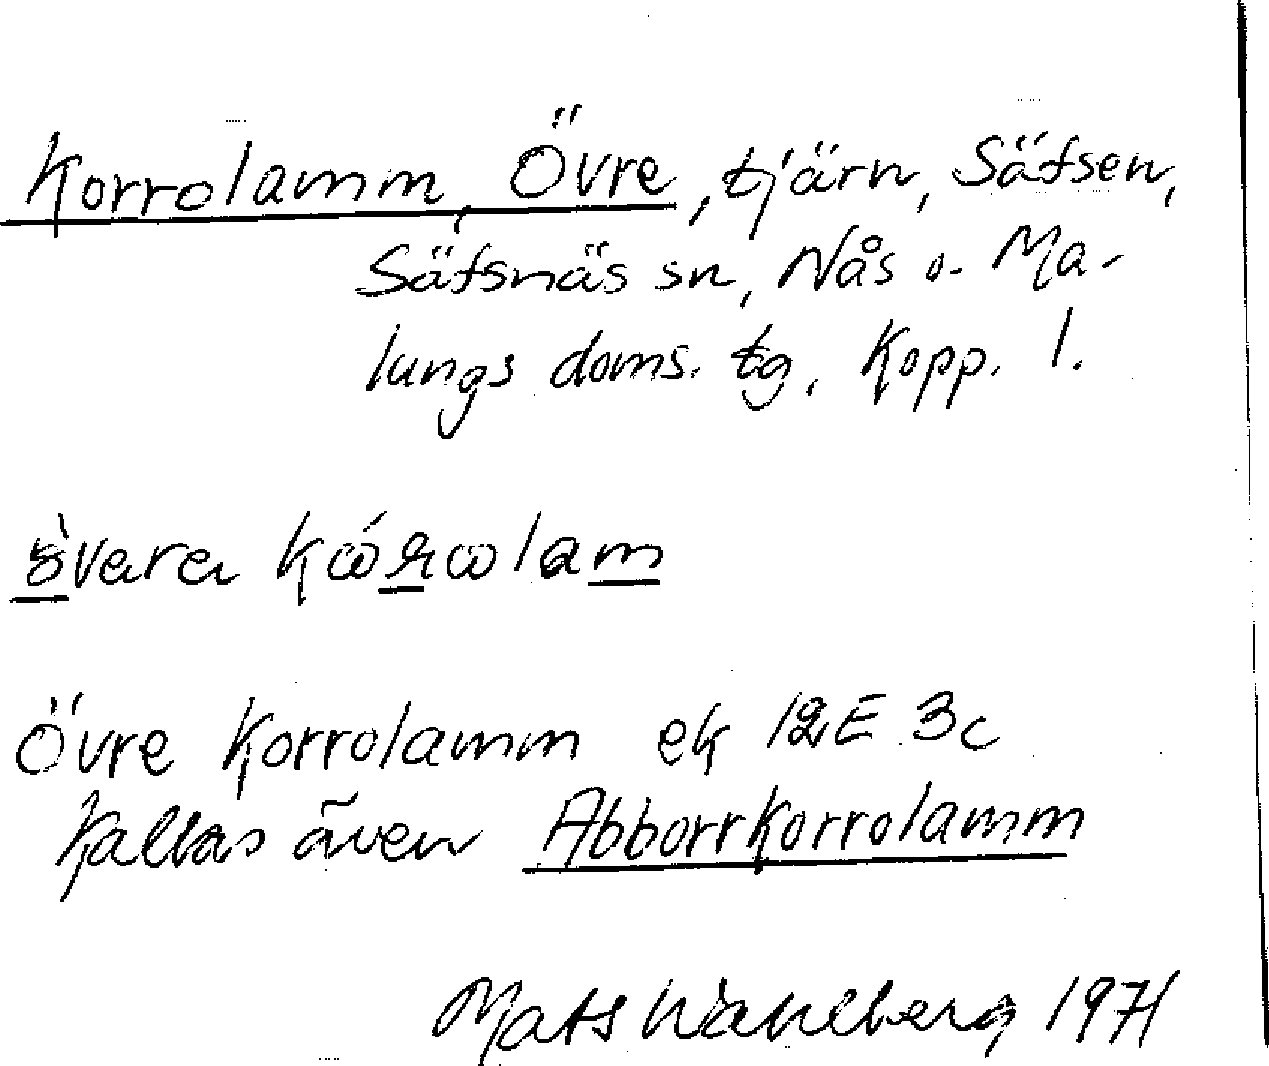 Korrolamm, Övre, tjärn, Säfsen,
Säfsnäs sn, Nås o. Ma-
lungs doms. tg, Kopp. l.
Övre Korrolamm ek 12E 3c
kallas även Abborrkorrolamm
Mats Wahlberg 1971